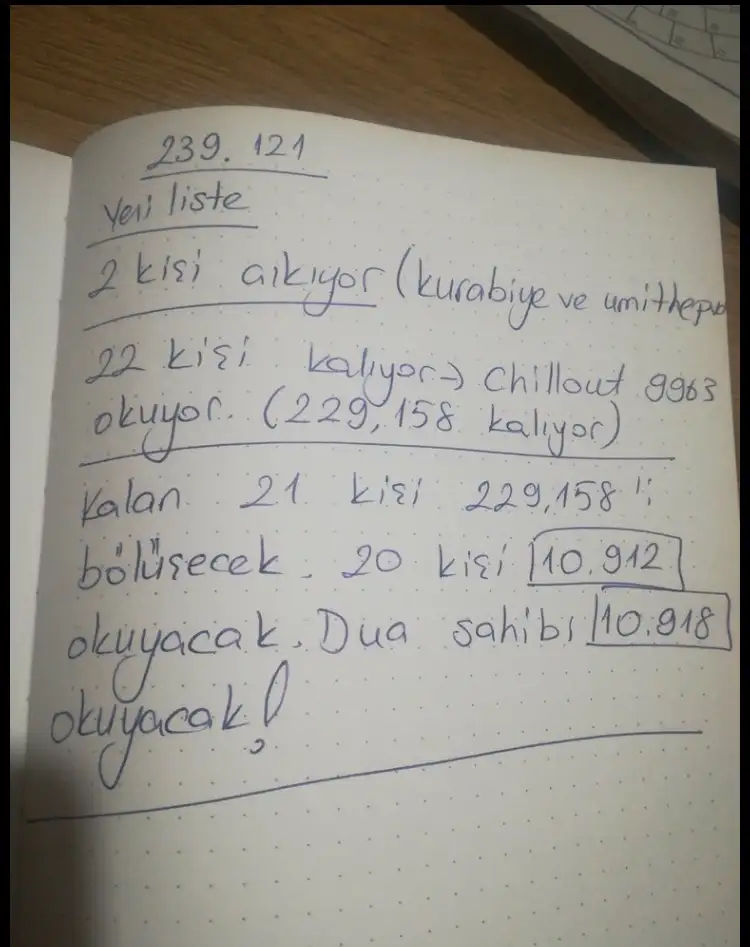 239.121
Yeni liste
2 kişi çıkıyor (kurabiye ve umithep
22 kişi kalıyor → Chillout 9963
okuyor. (229,158 kalıyor)
Kalan 21 kişi 229,158'i
bölüşecek. 20 kişi 10.912
okuyacak. Dua sahibi 10.918
okuyacak!